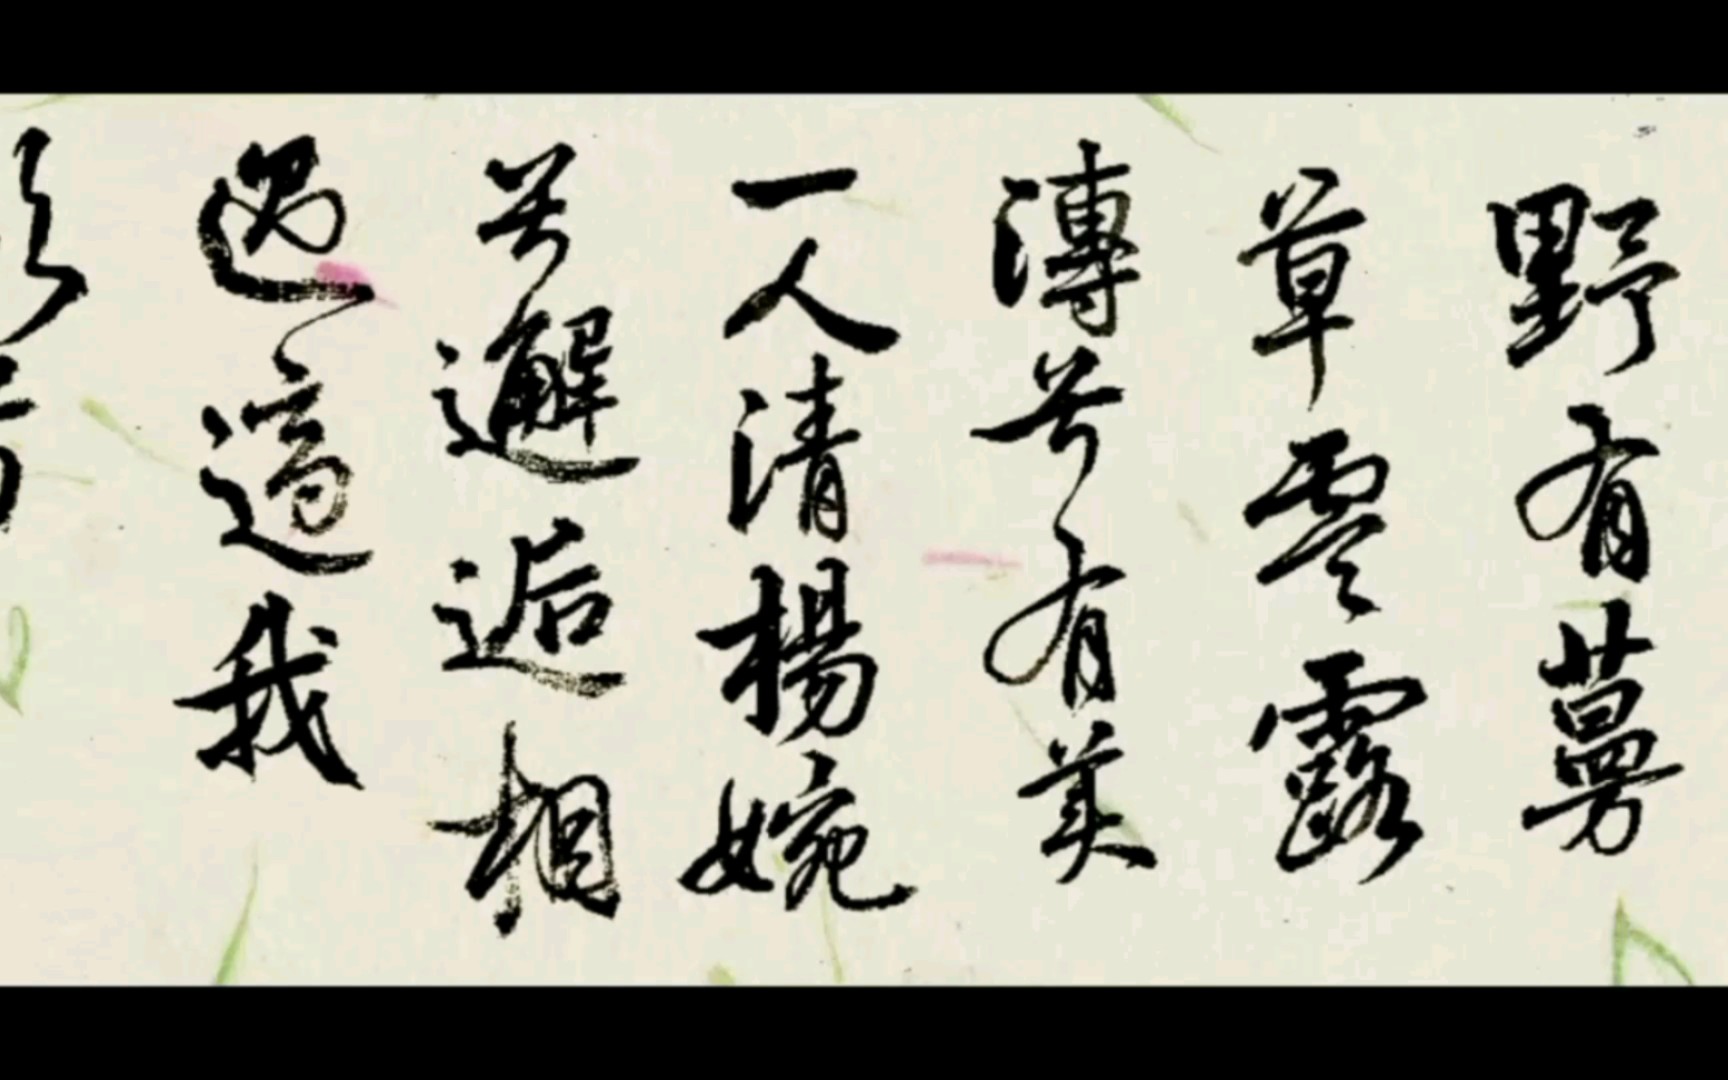 野有蔓
草零露
漙兮有美
一人清揚婉
兮邂逅相
遇適我